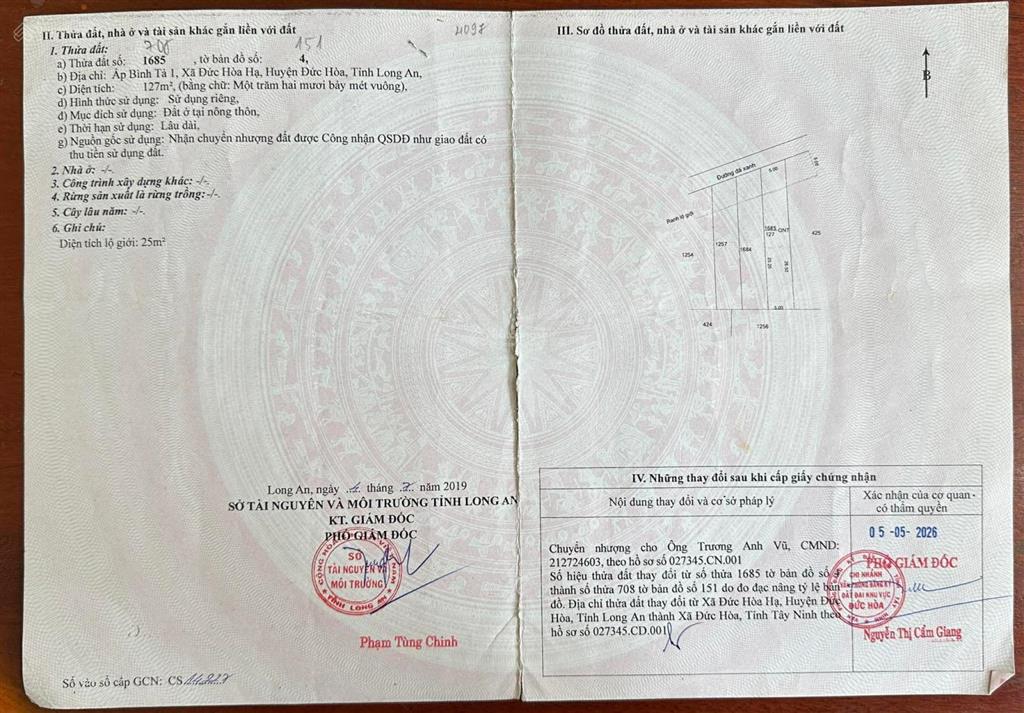 4097
II. Thửa đất, nhà ở và tài sản khác gắn liền với đất
1. Thửa đất: 708 151
a) Thửa đất số: 1685 , tờ bản đồ số: 4,
b) Địa chỉ: Ấp Bình Tả 1, Xã Đức Hòa Hạ, Huyện Đức Hòa, Tỉnh Long An,
c) Diện tích: 127m², (bằng chữ: Một trăm hai mươi bảy mét vuông),
d) Hình thức sử dụng: Sử dụng riêng,
đ) Mục đích sử dụng: Đất ở tại nông thôn,
e) Thời hạn sử dụng: Lâu dài,
g) Nguồn gốc sử dụng: Nhận chuyển nhượng đất được Công nhận QSDĐ như giao đất có
thu tiền sử dụng đất.
2. Nhà ở: -/-.
3. Công trình xây dựng khác: -/-.
4. Rừng sản xuất là rừng trồng: -/-.
5. Cây lâu năm: -/-.
6. Ghi chú:
Diện tích lộ giới: 25m²
Long An, ngày tháng năm 2019
SỞ TÀI NGUYÊN VÀ MÔI TRƯỜNG TỈNH LONG AN
KT. GIÁM ĐỐC
PHÓ GIÁM ĐỐC
SỞ
TÀI NGUYÊN VÀ
MÔI TRƯỜNG
TỈNH LONG AN
Phạm Tùng Chinh
Số vào sổ cấp GCN: CS
III. Sơ đồ thửa đất, nhà ở và tài sản khác gắn liền với đất
B
Đường đá xanh
5.00
5.00
Ranh lộ giới
1685
127 ONT
425
1257
1684
1254
25.25
25.50
5.00
424
1256
IV. Những thay đổi sau khi cấp giấy chứng nhận
Nội dung thay đổi và cơ sở pháp lý
Xác nhận của cơ quan
có thẩm quyền
05-05-2026
Chuyển nhượng cho Ông Trương Anh Vũ, CMND:
212724603, theo hồ sơ số 027345.CN.001
Số hiệu thửa đất thay đổi từ số thửa 1685 tờ bản đồ số
thành số thửa 708 tờ bản đồ số 151 do đo đạc nâng tỷ lệ bản
đồ. Địa chỉ thửa đất thay đổi từ Xã Đức Hòa Hạ, Huyện Đức
Hòa, Tỉnh Long An thành Xã Đức Hòa, Tỉnh Tây Ninh theo
hồ sơ số 027345.CD.001
PHÓ GIÁM ĐỐC
CHI NHÁNH
VĂN PHÒNG ĐĂNG KÝ
ĐẤT ĐAI KHU VỰC
ĐỨC HÒA
Nguyễn Thị Cẩm Giang